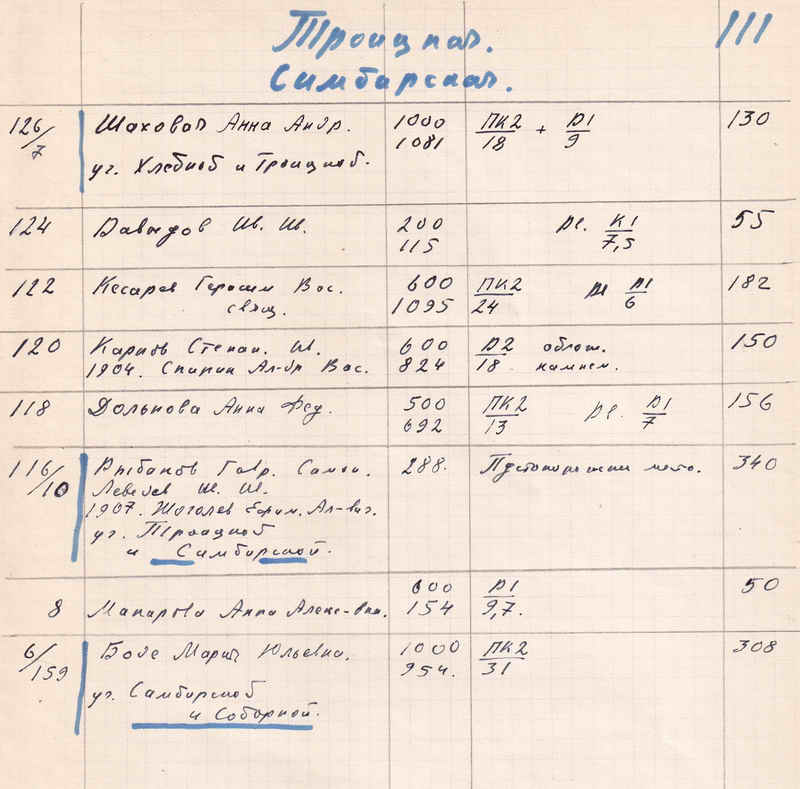 Троицкая. III
Симбирская.
126/7 Шаховая Анна Андр. 1000 ПК2/18 + Д1/9 130
1081
уг. Хлебной и Троицкой.
124 Давыдов Ив. Ив. 200 К1/7,5 55
115
122 Кесарев Герасим Вас. 600 ПК2/24 Д1/6 182
свящ. 1095
120 Карпов Степан. И. 600 Д2/18 облож. 150
1904. Спирин Ал-др Вас. 824 камнем.
118 Долькова Анна Фед. 500 ПК2/13 Д1/7 156
692
116/10 Рыбаков Гавр. Самои. 288. Пустопорожнее место. 340
Лебедев И. И.
1907. Жоголев Ефим. Ал-вич.
уг. Троицкой
и Симбирской.
8 Макарова Анна Алекс-вна. 600 Д1/9,7. 50
154
6/159 Боде Мария Юльевна. 1000 ПК2/31 308
954.
уг. Симбирской
и Соборной.